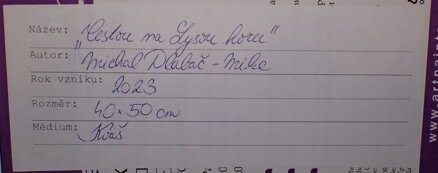 Název: "Cestou na Lysou horu"
Autor: Michal Dlabáč - Milec
Rok vzniku: 2023
Rozměr: 40 x 50 cm
Médium: Kvaš
www.artpa